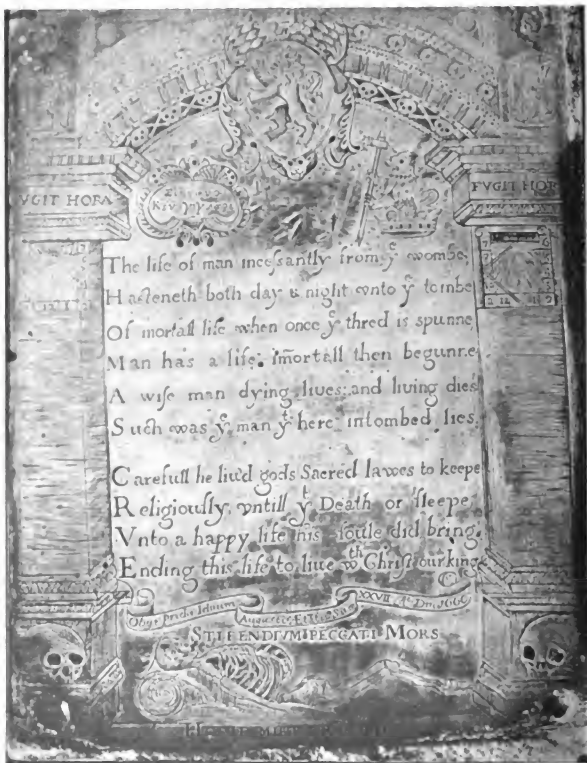 FVGIT HORA
FVGIT HOR
The life of man incessantly from yͤ wombe,
Hasteneth both day & night vnto yͤ tombe
Of mortall life when once yͤ thred is spunne
Man has a life: im̄ortall then begunne
A wise man dying, liues: and liuing dies
Such was yͤ man yͭ here intombed, lies.
Carefull he liu'd gods Sacred lawes to keepe
Religiously, vntill yͭ Death or sleepe,
Vnto a happy life his soule did bring,
Ending this life to liue wͭͪ Christ our king
Obyt Pridie Iduum Augusti XXVII Aº Dm̄
STIPENDIVM PECCATI MORS